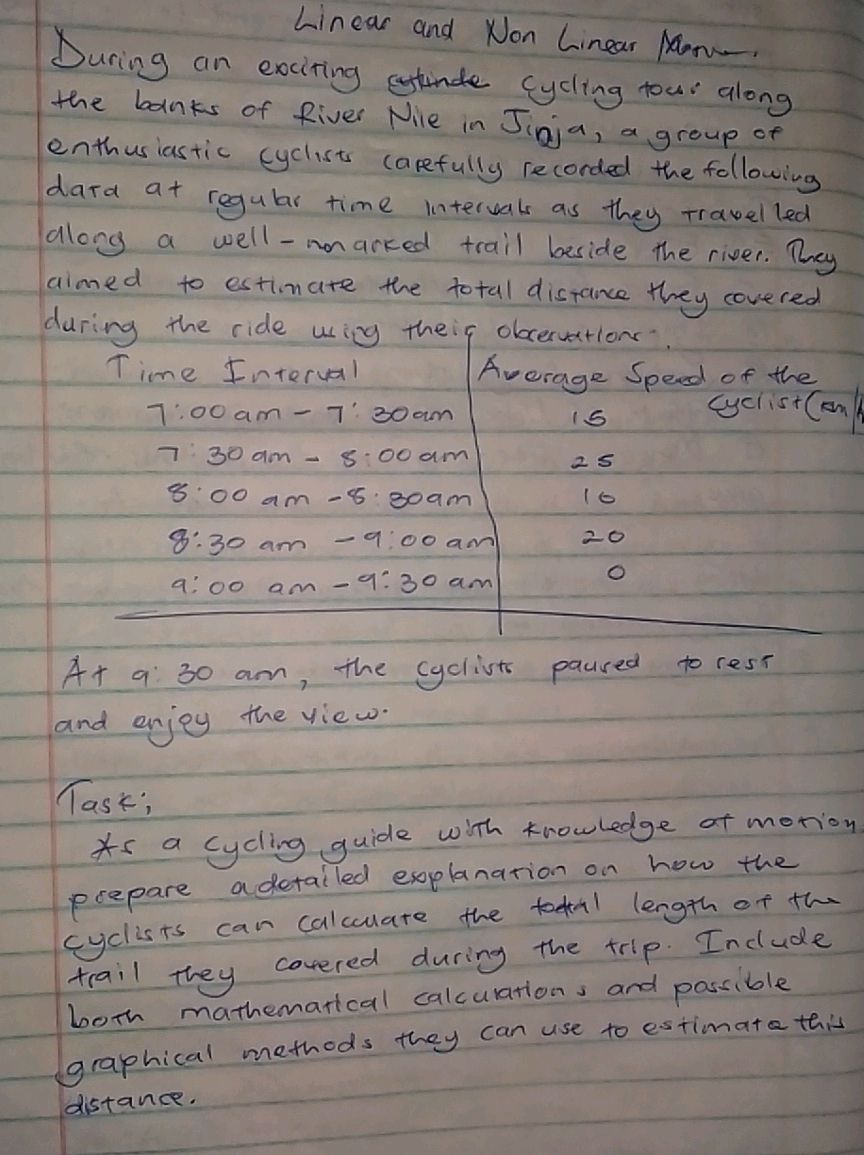 Linear and Non Linear
During an exciting cycling tour along
the banks of River Nile in Jinja, a group of
enthusiastic cyclists carefully recorded the following
data at regular time intervals as they travelled
along a well-marked trail beside the river. They
aimed to estimate the total distance they covered
during the ride using their observations.
Time Interval | Average Speed of the
cyclist (km/h
7:00 am - 7:30 am 15
7:30 am - 8:00 am 25
8:00 am - 8:30 am 10
8:30 am - 9:00 am 20
9:00 am - 9:30 am 0
At 9:30 am, the cyclists paused to rest
and enjoy the view.
Task;
As a cycling guide with knowledge of motion
prepare a detailed explanation on how the
cyclists can calculate the total length of the
trail they covered during the trip. Include
both mathematical calculations and possible
graphical methods they can use to estimate this
distance.